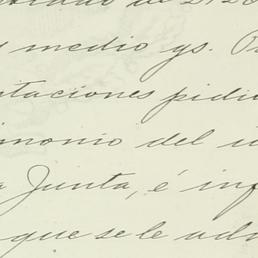 medio gs.
taciones pidi
monio del
Junta, é inf
que se le